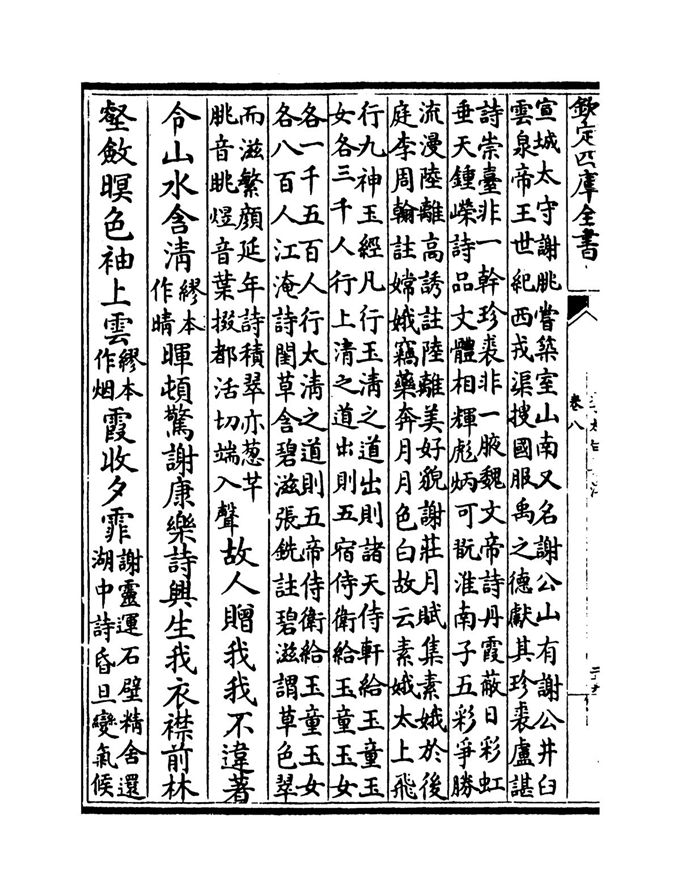 欽定四庫全書
卷八
宣城太守謝朓嘗築室山南又名謝公山有謝公井臼
雲泉帝王世紀西戎渠搜國服禹之德獻其珍裘盧諶
詩崇臺非一幹珍裘非一腋魏文帝詩丹霞蔽日彩虹
垂天鍾嶸詩品文體相輝彪炳可翫淮南子五彩爭勝
流漫陸離高誘註陸離美好貌謝莊月賦集素娥於後
庭李周翰註嫦娥竊藥奔月月色白故云素娥太上飛
行九神玉經凡行玉清之道出則諸天侍軒給玉童玉
女各三千人行上清之道出則五宿侍衛給玉童玉女
各一千五百人行太清之道則五帝侍衛給玉童玉女
各八百人江淹詩閨草含碧滋張銑註碧滋謂草色翠
而滋繁顏延年詩積翠亦葱芊
朓音眺煜音葉掇都活切端入聲 故人贈我我不違著
令山水含清繆本作晴暉頓驚謝康樂詩興生我衣襟前林
壑斂暝色袖上雲繆本作烟霞收夕霏謝靈運石壁精舍還湖中詩昏旦變氣候